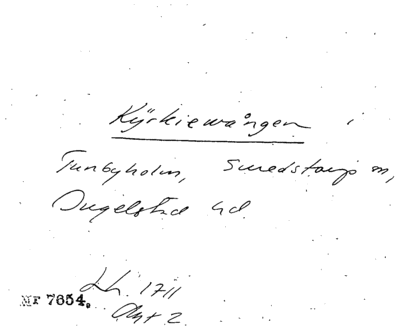 Kÿrkiewången i
Tunbyholm, Smedstorp sn,
Ingelstad hd.
Lh. 1711
Akt 2
MF 7654.